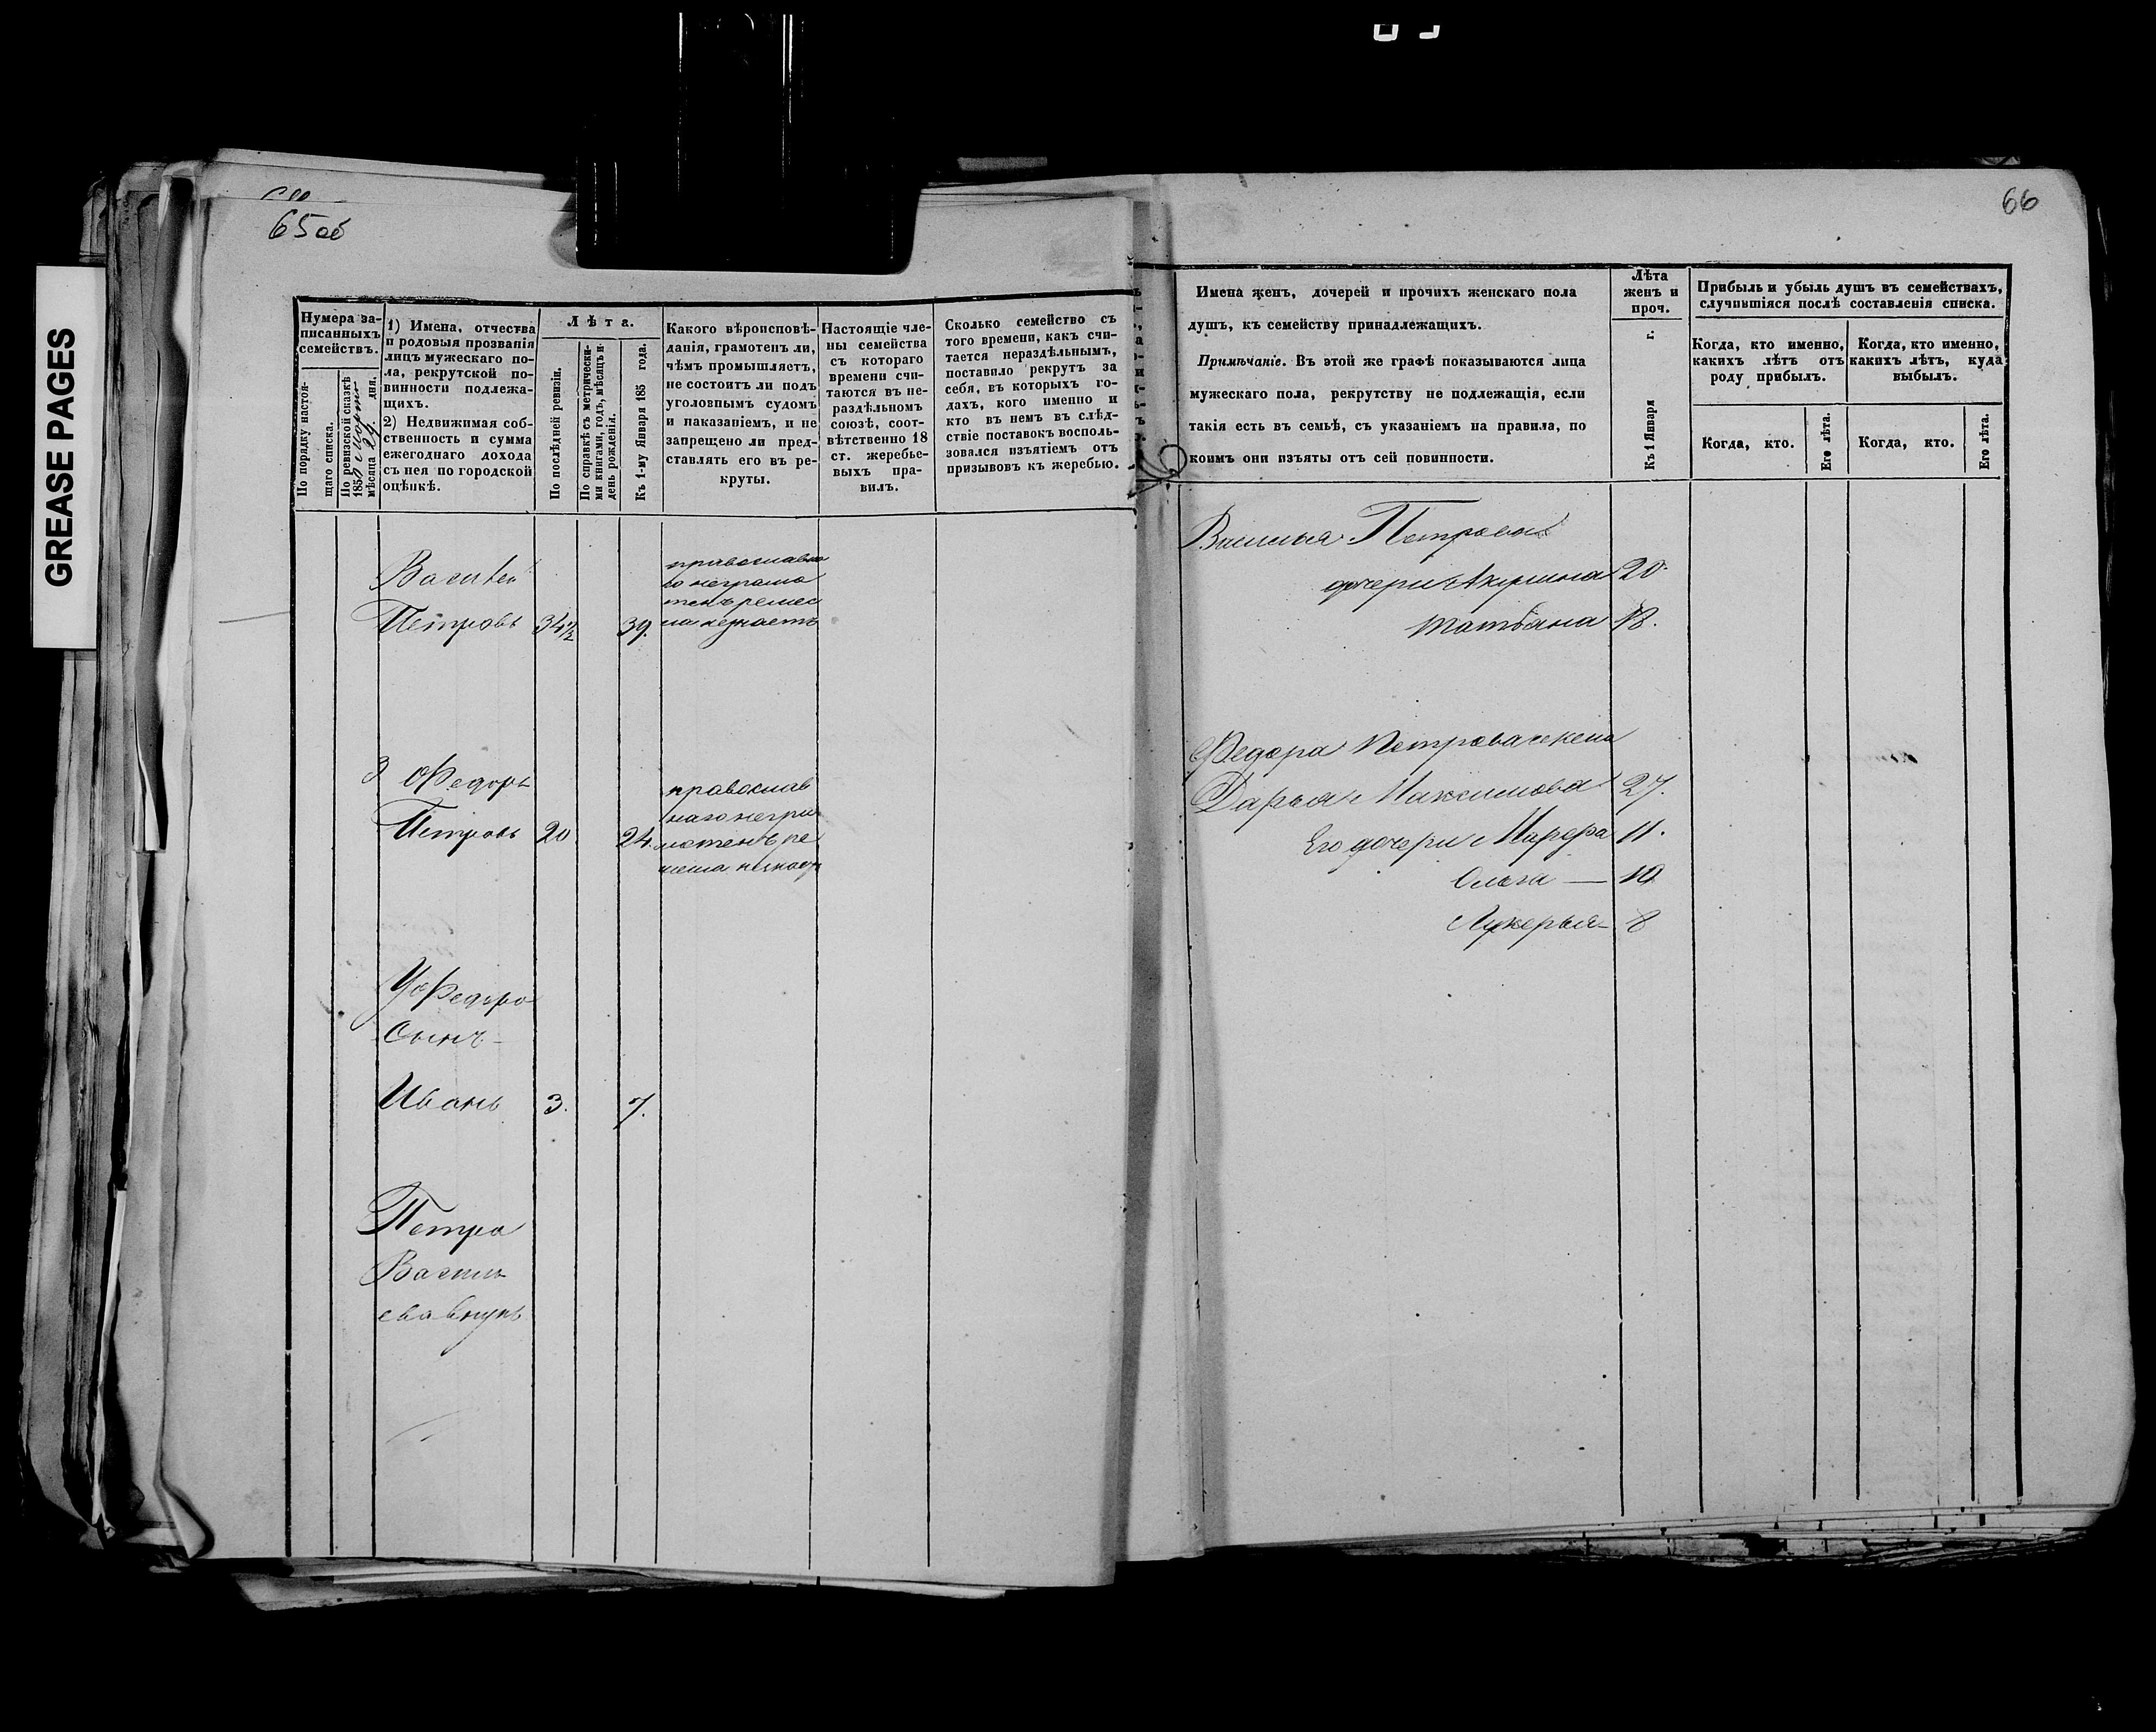 GREASE PAGES
65 об
66
Нумера за-
писанныхъ
семействъ.
По порядку настоя-
щаго списка.
По ревизской сказкѣ
185 Марта
мѣсяца 29. дня.
1) Имена, отчества
и родовыя прозванія
лицъ мужескаго по-
ла, рекрутской по-
винности подлежа-
щихъ.
2) Недвижимая соб-
ственность и сумма
ежегоднаго дохода
съ нея по городской
оцѣнкѣ.
Лѣта.
По послѣдней ревизіи.
По справкѣ съ метрически-
ми книгами, годъ, мѣсяцъ и
день рожденія.
Къ 1-му Января 185 года.
Какого вѣроисповѣ-
данія, грамотенъ ли,
чѣмъ промышляетъ,
не состоитъ ли подъ
уголовнымъ судомъ
и наказаніемъ, и не
запрещено ли пред-
ставлять его въ ре-
круты.
Настоящіе чле-
ны семейства
съ котораго
времени счи-
таются въ не-
раздѣльномъ
союзѣ, соот-
вѣтственно 18
ст. жеребье-
выхъ пра-
вилъ.
Сколько семейство съ
того времени, какъ счи-
тается нераздѣльнымъ,
поставило рекрутъ за
себя, въ которыхъ го-
дахъ, кого именно и
кто въ немъ въ слѣд-
ствіе поставокъ восполь-
зовался изъятіемъ отъ
призывовъ къ жеребью.
Василей
Петровъ 34½ 39.
православна
го неграмо
тенъ ремес
ла незнаетъ
3 Федоръ
Петровъ 20 24.
православ
наго негра
мотенъ ре
месла незнаетъ
У Федора
Сынъ
Иванъ 3. 7.
Петра
Василь
ева внукъ
Имена женъ, дочерей и прочихъ женскаго пола
душъ, къ семейству принадлежащихъ.
Примѣчаніе. Въ этой же графѣ показываются лица
мужескаго пола, рекрутству не подлежащія, если
такія есть въ семьѣ, съ указаніемъ на правила, по
коимъ они изъяты отъ сей повинности.
Лѣта
женъ и
проч.
Къ 1 Января г.
Прибыль и убыль душъ въ семействахъ,
случившіяся послѣ составленія списка.
Когда, кто именно,
какихъ лѣтъ отъ
роду прибылъ.
Когда, кто именно,
какихъ лѣтъ, куда
выбылъ.
Когда, кто.
Его лѣта.
Когда, кто.
Его лѣта.
Василья Петрова
дочери Акулина 20.
Татьяна 18.
Федора Петрова жена
Дарья Максимова 27.
Его дочери Марфа 11.
Ольга — 10
Лукерья 8